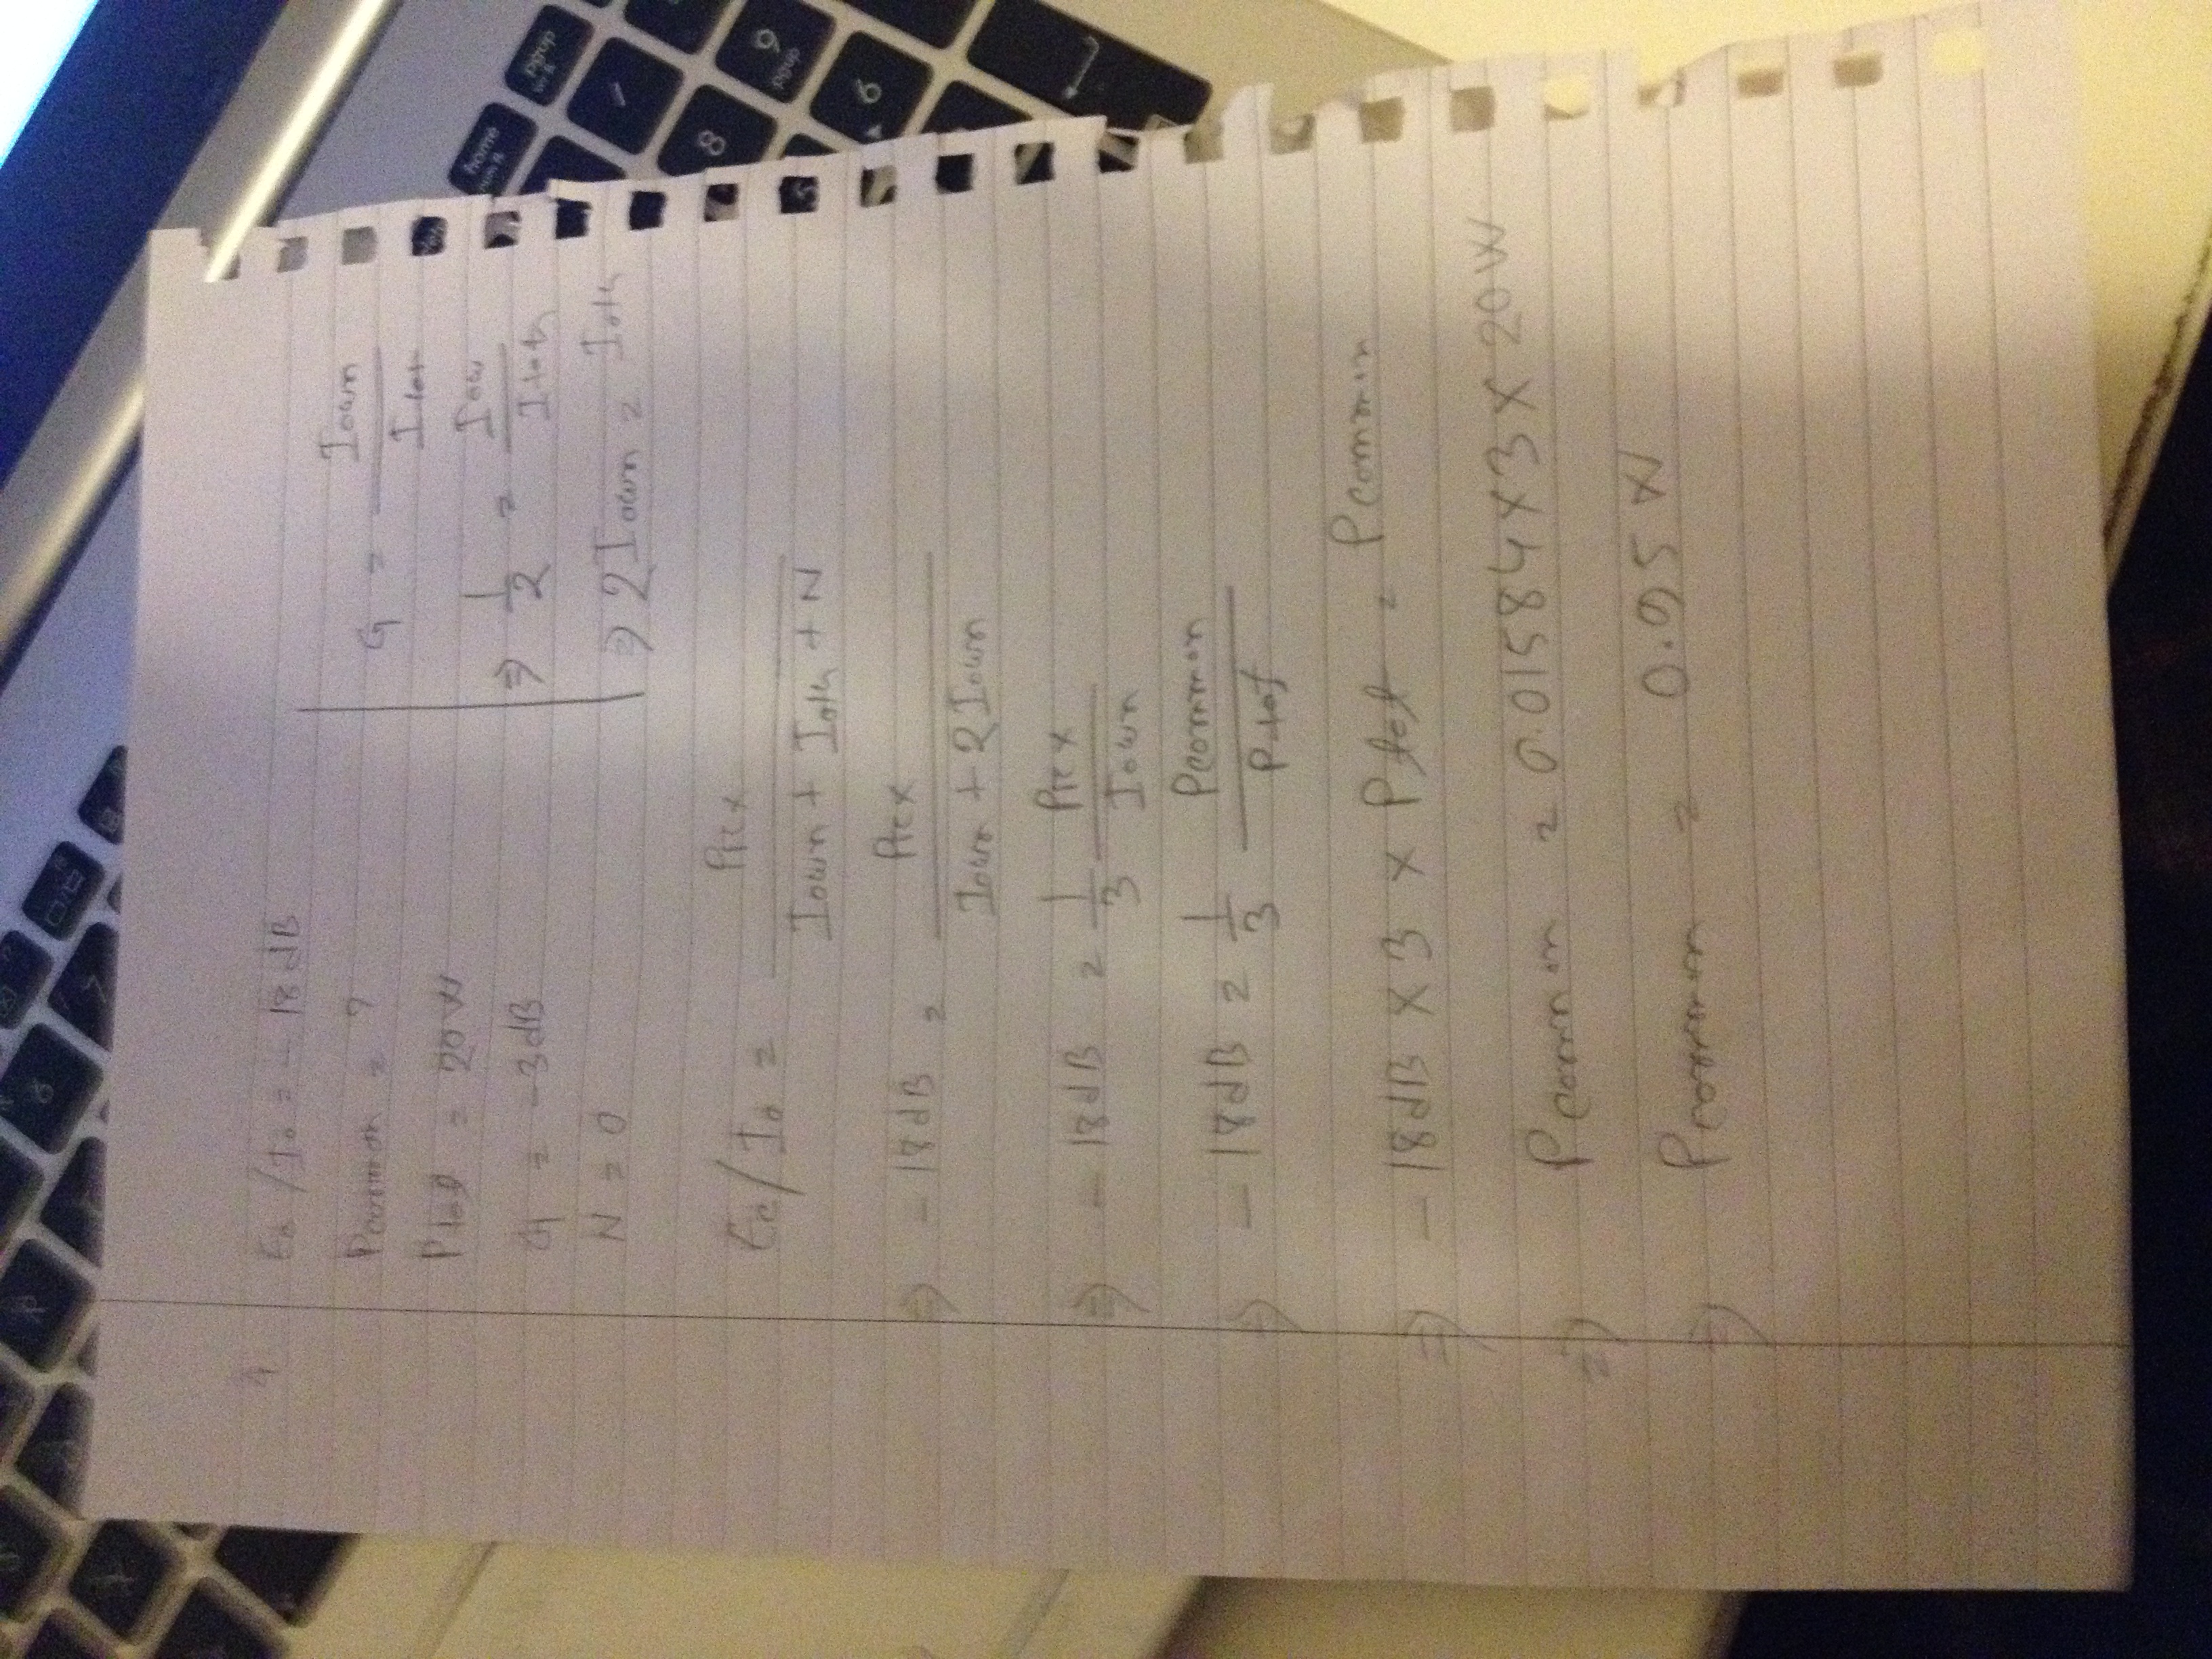 4
Ec/Io = -18dB
Pcommon = ?
Ptot = 20W
G = -3dB
N = 0
G = Iown / Itot
⇒ 1/2 = Iow / Itoth
⇒ 2Iown = Ioth
Ec/Io = Prx / Iown + Ioth + N
⇒ -18dB = Prx / Iown + 2Iown
⇒ -18dB = 1/3 Prx / Iown
⇒ -18dB = 1/3 Pcommon / Ptot
⇒ -18dB × 3 × Ptot = Pcommon
⇒ Pcommon = 0.01584 × 3 × 20W
⇒ Pcommon = 0.95W
home
pgup
7
8
9
pgup
6
6